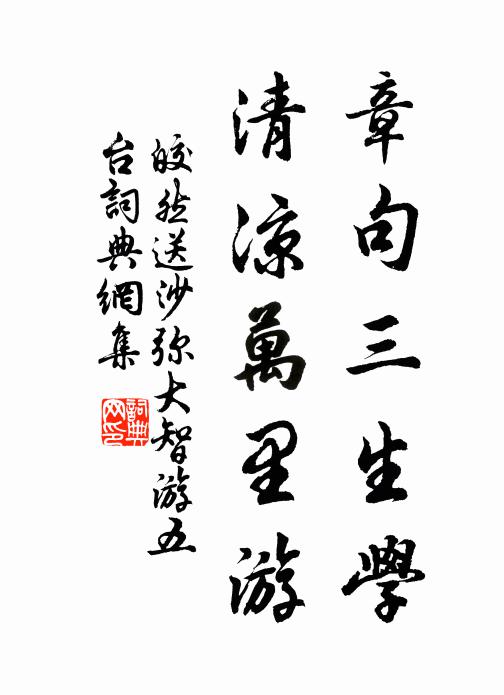 章句三生學
清涼萬里游
皎然送沙弥大智游五
台詞典網集
詞典
网印